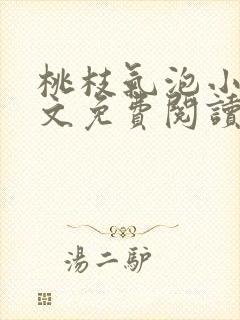 桃枝氣泡小
文免費閱讀
湯二驴